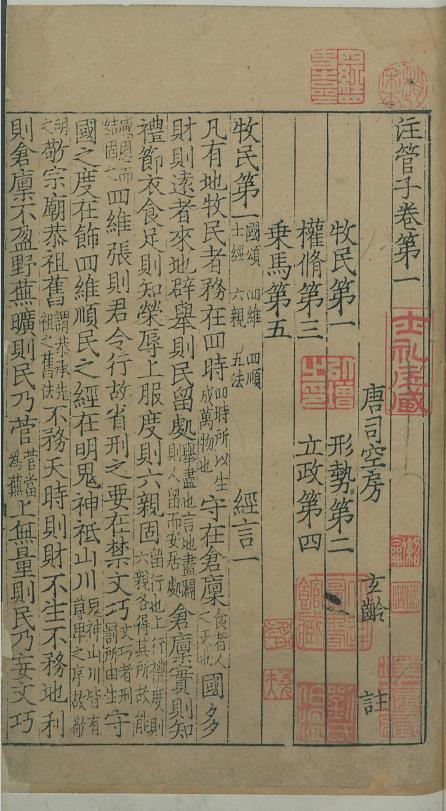 注管子卷第一
唐司空房 玄齡 註
牧民第一 形勢第二
權脩第三 立政第四
乗馬第五
牧民第一 國頌 四維 四順 士經 六親 五法 經言一
凡有地牧民者務在四時四時所以生成萬物也守在倉廩食者人之天也國多
財則遠者來地辟舉則民留處舉盡也言地盡闢則人留而安居處倉廩實則知
禮節衣食足則知榮辱上服度則六親固行也上行禮度則六親各得其所故能
感恩而結固之四維張則君令行故省刑之要在禁文巧文巧者刑罰所由生守
國之度在飾四維順民之經在明鬼神祗山川鬼神山川皆有尊卑之序故敬
明之敬宗廟恭祖舊謂恭承先祖之舊法不務天時則財不生不務地利
則倉廩不盈野蕪曠則民乃菅菅當為上無量則民乃妄文巧
士礼居藏